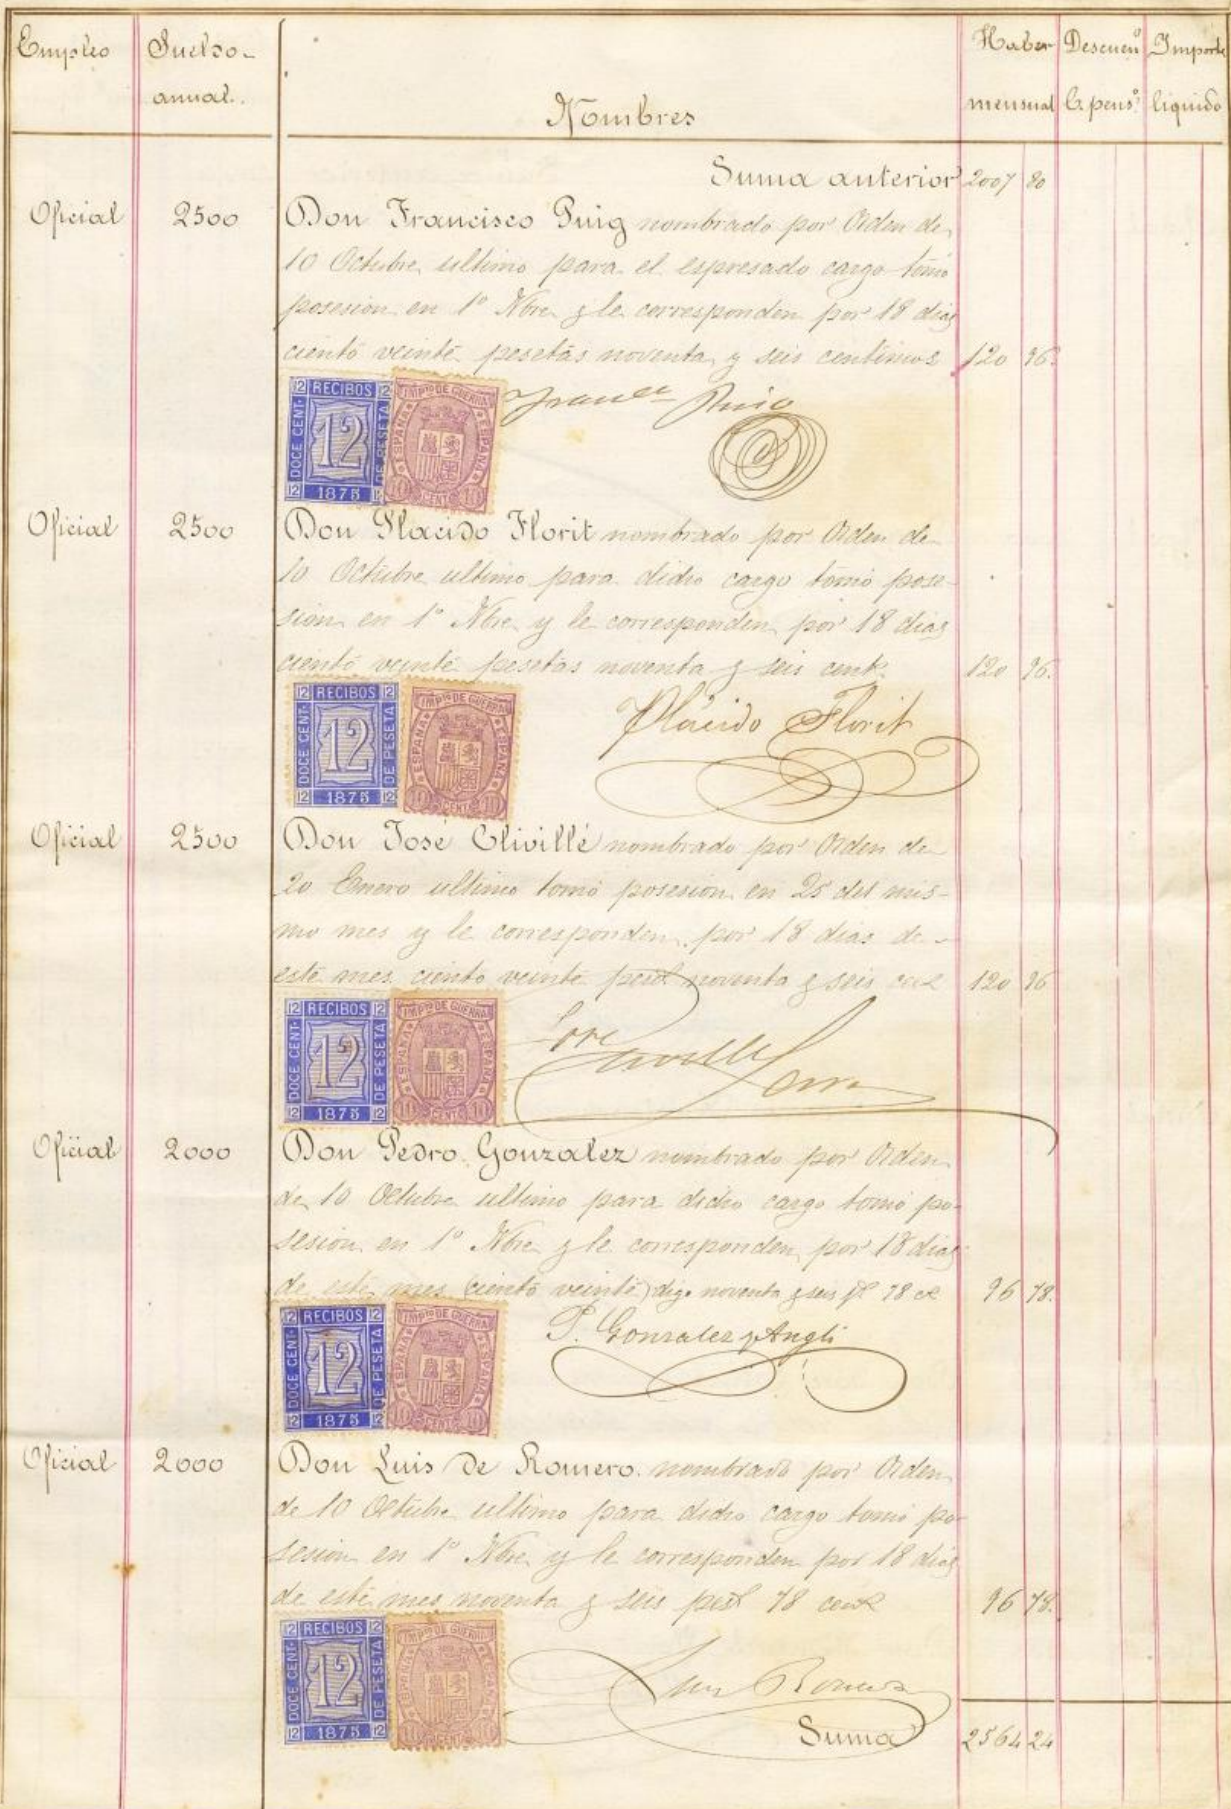 Empleo Sueldo Nombres Haber Descuenº Importe
anual. mensual líquido
Suma anterior 2007 80
Oficial 2500 Don Francisco Puig nombrado por Orden de
10 Octubre ultimo para el espresado cargo tomó
posesion en 1º Nbre y le corresponden por 18 dias
ciento veinte pesetas noventa y seis centimos 120 96
RECIBOS 12 DOCE CENT. DE PESETA 1875
IMPTO DE GUERRA ESPAÑA 10 CENTS 10
Franco Puig
Oficial 2500 Don Placido Florit nombrado por Orden de
10 Octubre ultimo para dicho cargo tomó pose-
sion en 1º Nbre y le corresponden por 18 dias
ciento veinte pesetas noventa y seis cents. 120 96.
RECIBOS 12 DOCE CENT. DE PESETA 1875
IMPTO DE GUERRA ESPAÑA 10 CENTS 10
Plácido Florit
Oficial 2500 Don José Olivillé nombrado por Orden de
20 Enero ultimo tomó posesion en 25 del mis-
mo mes y le corresponden por 18 dias de
este mes ciento veinte noventa y seis 120 96
RECIBOS 12 DOCE CENT. DE PESETA 1875
IMPTO DE GUERRA ESPAÑA 10 CENTS 10
Jose
Oficial 2000 Don Pedro Gonzalez nombrado por Orden
de 10 Octubre ultimo para dicho cargo tomó po-
sesion en 1º Nbre y le corresponden por 18 dias
de este mes (ciento veinte) digo noventa y seis 78 96 78.
RECIBOS 12 DOCE CENT. DE PESETA 1875
IMPTO DE GUERRA ESPAÑA 10 CENTS 10
P. Gonzalez y Angli
Oficial 2000 Don Luis de Romero nombrado por Orden
de 10 Octubre ultimo para dicho cargo tomó po-
sesion en 1º Nbre y le corresponden por 18 dias
de este mes noventa y seis 78 96 78.
RECIBOS 12 DOCE CENT. DE PESETA 1875
IMPTO DE GUERRA ESPAÑA 10 CENTS 10
Luis Romero
Suma 2564 24